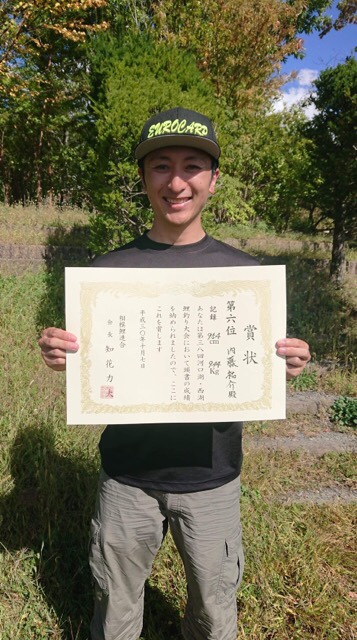 EUROCARP
賞状
第六位 内藤祐介殿
記録 cm Kg
あなたは第二八回河口湖・西湖
鯉釣り大会において頭書の成績
を納められましたので、ここに
これを賞します
平成三〇年十月七日
相模鯉連合
会長 知花力